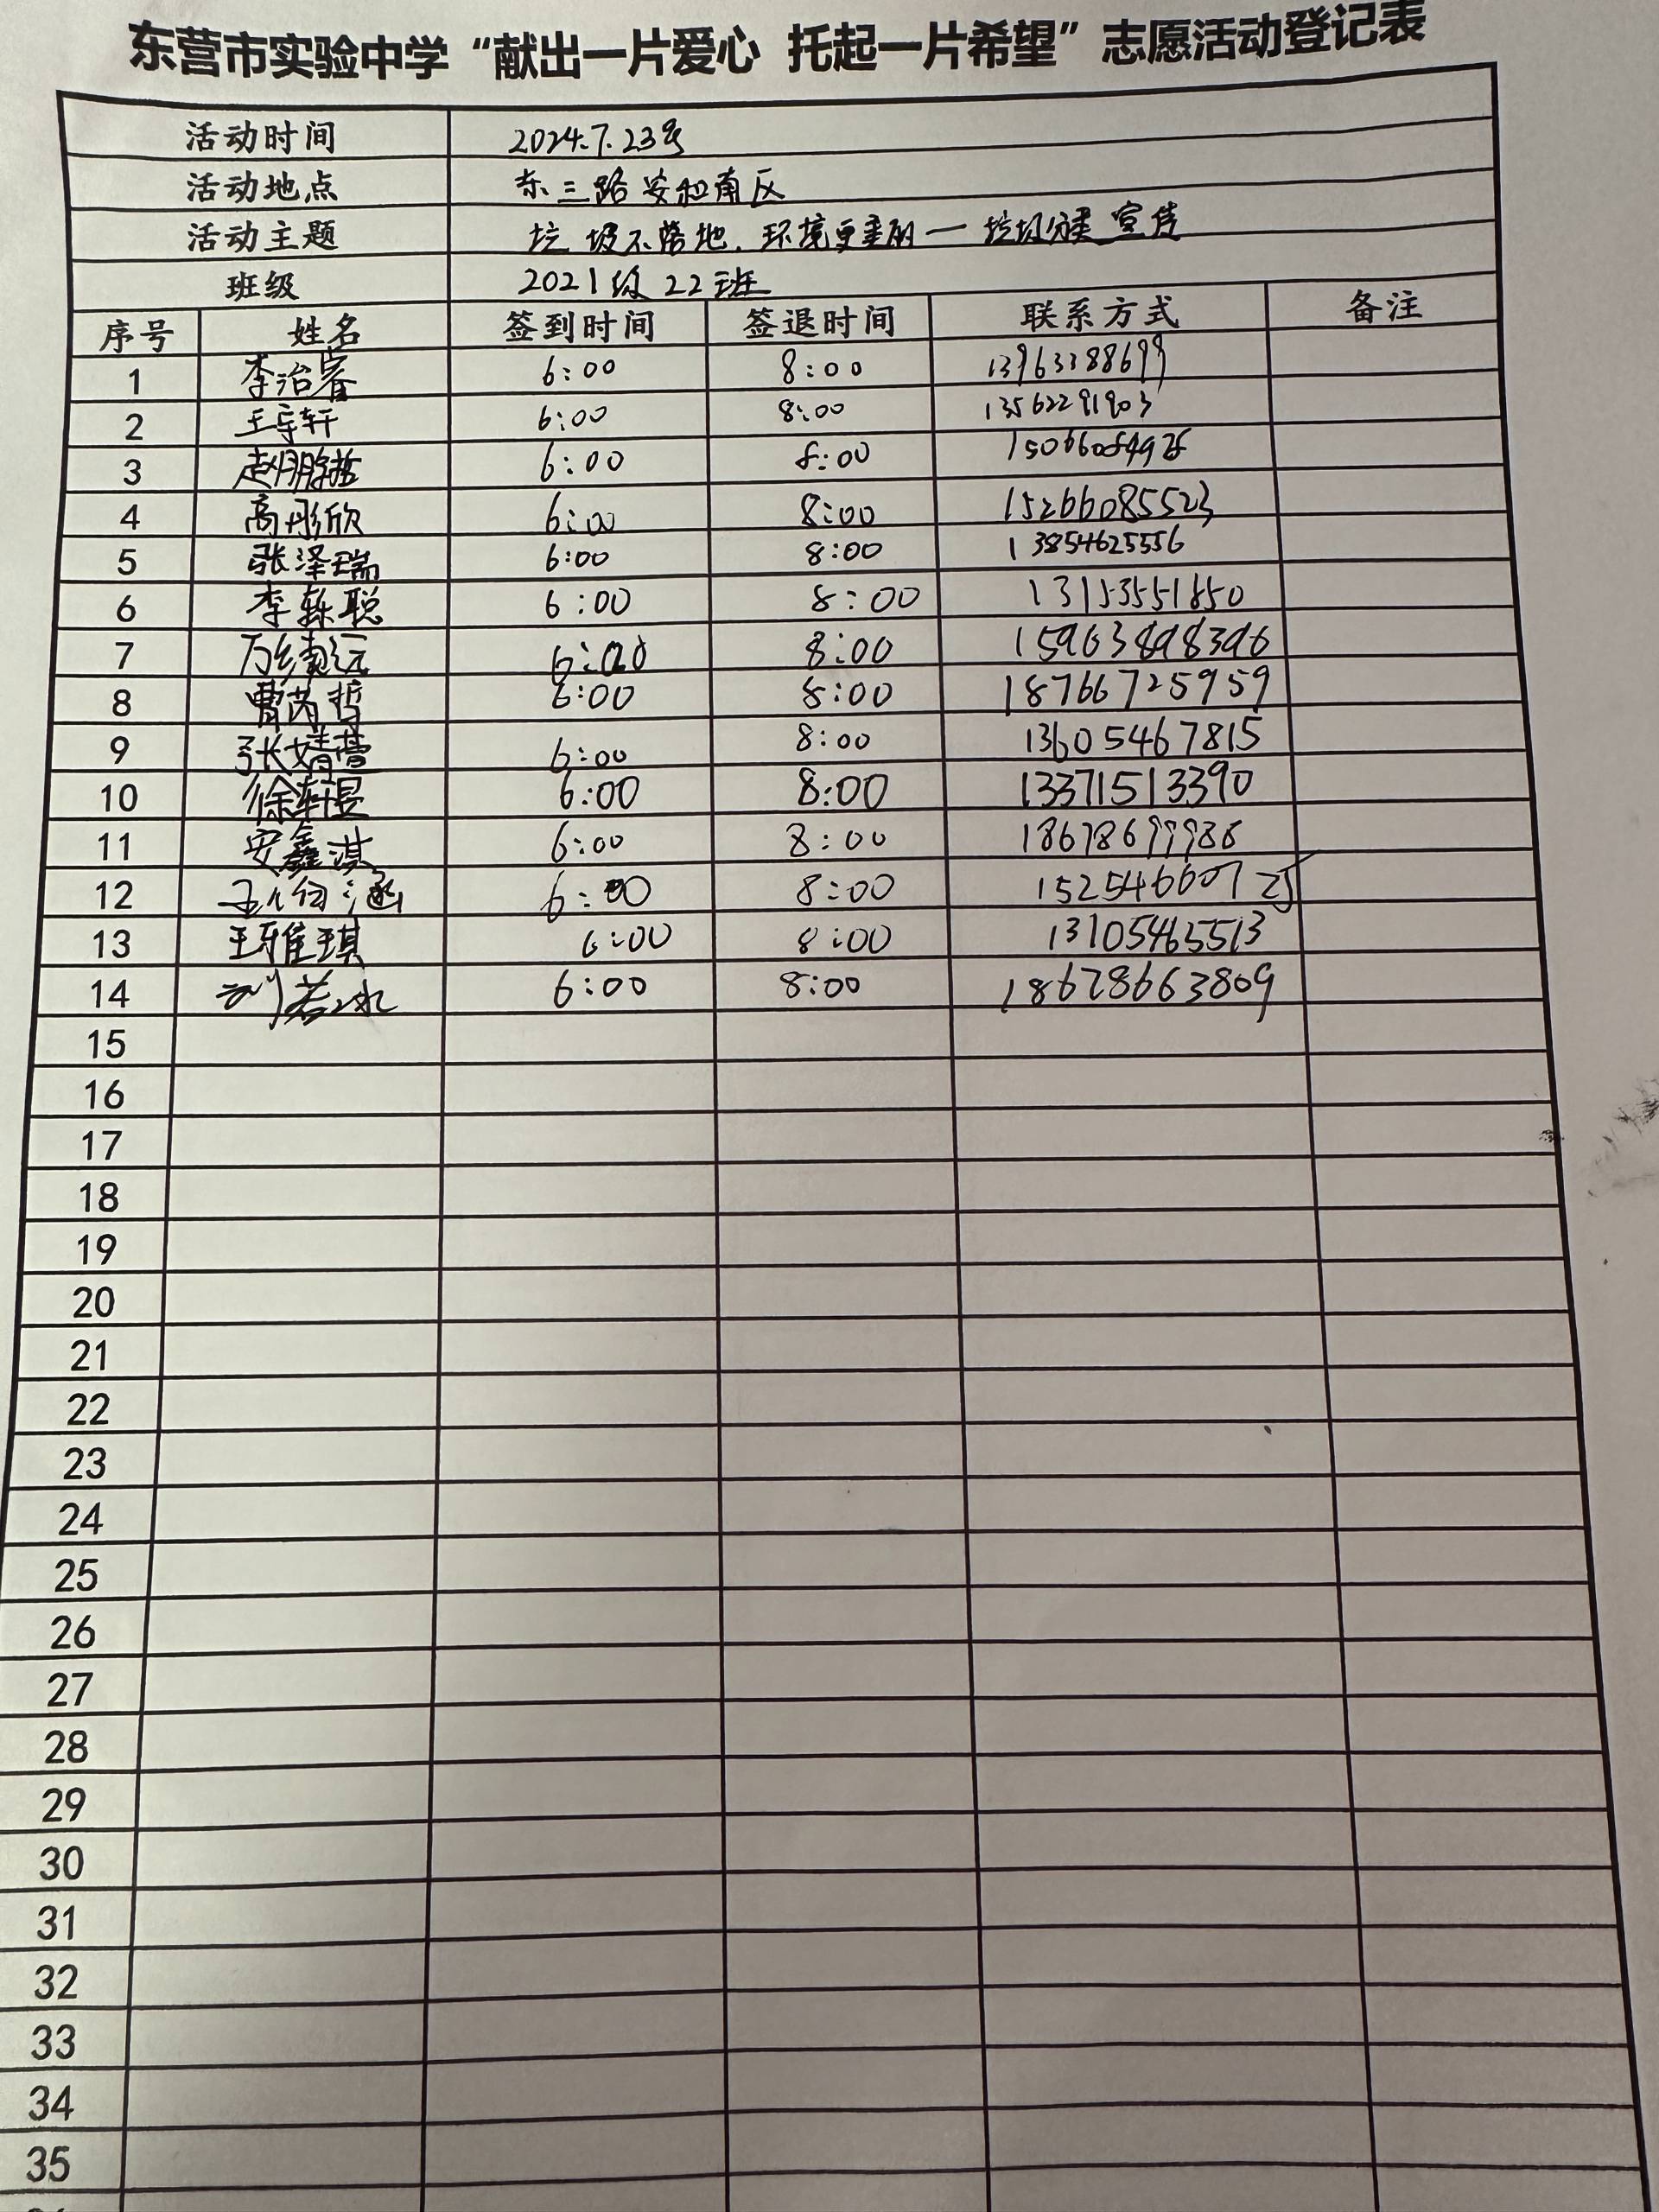 东营市实验中学“献出一片爱心 托起一片希望”志愿活动登记表
活动时间 2024.7.23号
活动地点 东三路安和南区
活动主题 垃圾不落地.环境更美丽一垃圾分类宣传
班级 2021级22班
序号 姓名 签到时间 签退时间 联系方式 备注
1 李治睿 6:00 8:00 13963388699
2 王宇轩 6:00 8:00 13562291903
3 赵朋哲 6:00 8:00
4 高彤欣 6:00 8:00 15266085523
5 张泽瑞 6:00 8:00 13854625556
6 李轶聪 6:00 8:00 13153551850
7 6:00 8:00 15963898396
8 曹芮哲 6:00 8:00 18766725959
9 张婧萱 6:00 8:00 13605467815
10 徐轩昱 6:00 8:00 13371513390
11 安鑫淇 6:00 8:00 18678699988
12 6:00 8:00
13 王雅琪 6:00 8:00 13105465513
14 刘若冰 6:00 8:00 18678663809
15
16
17
18
19
20
21
22
23
24
25
26
27
28
29
30
31
32
33
34
35